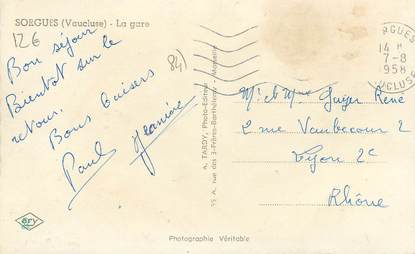 SORGUES (Vaucluse) - La gare
126
84)
Bon séjour
Bientôt sur le
retour.
Bons baisers
Paul Jeanine
A. TARDY, Photo-Editeur
55 A, rue des 3-Frères-Barthélemy - Marseille
RGUES
14 H
7-8
1958
UCLUS
Mr et Mme Guyer René
2 rue Vaubecour 2
Lyon 2e
Rhône
ery
Photographie Véritable